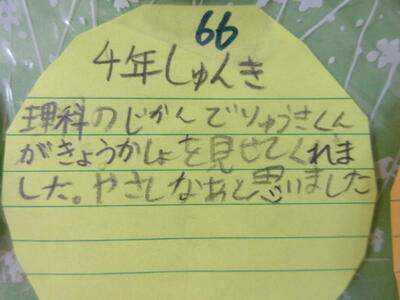 66
4年しゅんき
理科のじかんでりゅうきくん
がきょうかしょを見せてくれま
した。やさしなあと思いました